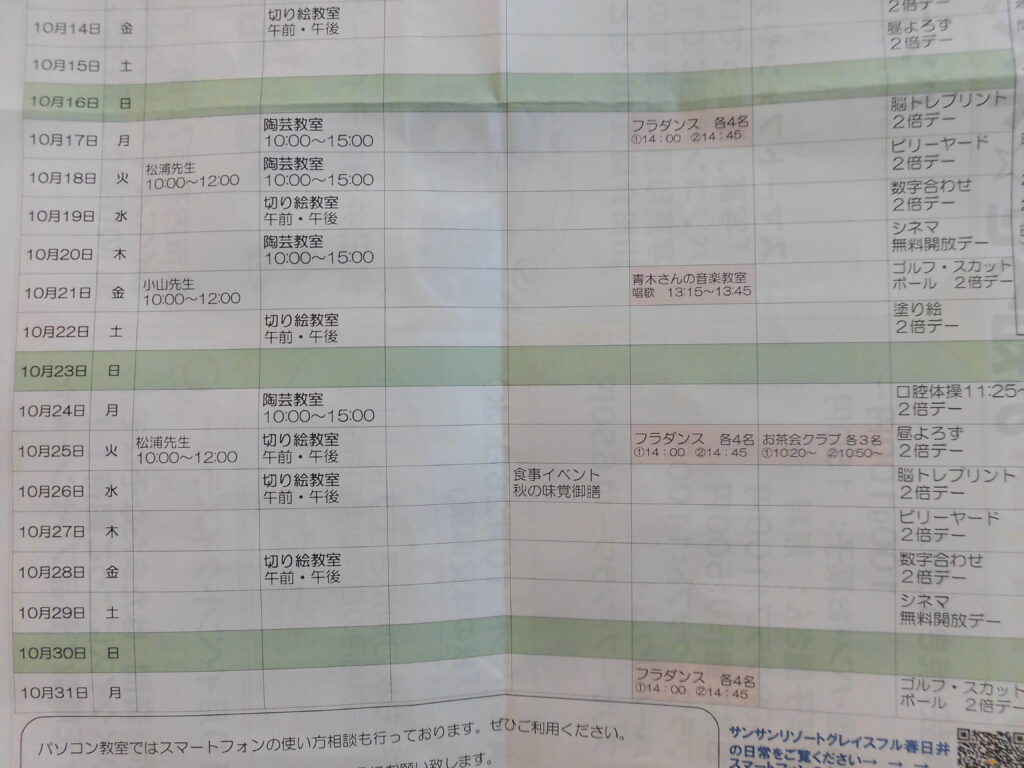 2倍デー
10月14日 金 切り絵教室 昼よろず
午前・午後 2倍デー
10月15日 土
10月16日 日 脳トレプリント
10月17日 月 陶芸教室 フラダンス 各4名 2倍デー
10:00～15:00 ①14:00 ②14:45 ビリーヤード
10月18日 火 松浦先生 陶芸教室 2倍デー
10:00～12:00 10:00～15:00 数字合わせ
10月19日 水 切り絵教室 2倍デー
午前・午後 シネマ
10月20日 木 陶芸教室 無料開放デー
10:00～15:00 ゴルフ・スカット
10月21日 金 小山先生 青木さんの音楽教室 ボール 2倍デー
10:00～12:00 唱歌 13:15～13:45
10月22日 土 切り絵教室 塗り絵
午前・午後 2倍デー
10月23日 日
10月24日 月 陶芸教室 口腔体操11:25～
10:00～15:00 2倍デー
10月25日 火 松浦先生 切り絵教室 フラダンス 各4名 お茶会クラブ 各3名 昼よろず
10:00～12:00 午前・午後 ①14:00 ②14:45 ①10:20～ ②10:50～ 2倍デー
10月26日 水 切り絵教室 食事イベント 脳トレプリント
午前・午後 秋の味覚御膳 2倍デー
10月27日 木 ビリーヤード
2倍デー
10月28日 金 切り絵教室 数字合わせ
午前・午後 2倍デー
10月29日 土 シネマ
無料開放デー
10月30日 日
10月31日 月 フラダンス 各4名 ゴルフ・スカット
①14:00 ②14:45 ボール 2倍デー
パソコン教室ではスマートフォンの使い方相談も行っております。ぜひご利用ください。
お願い致します。
サンサンリゾートグレイスフル春日井
の日常をご覧ください→ → →